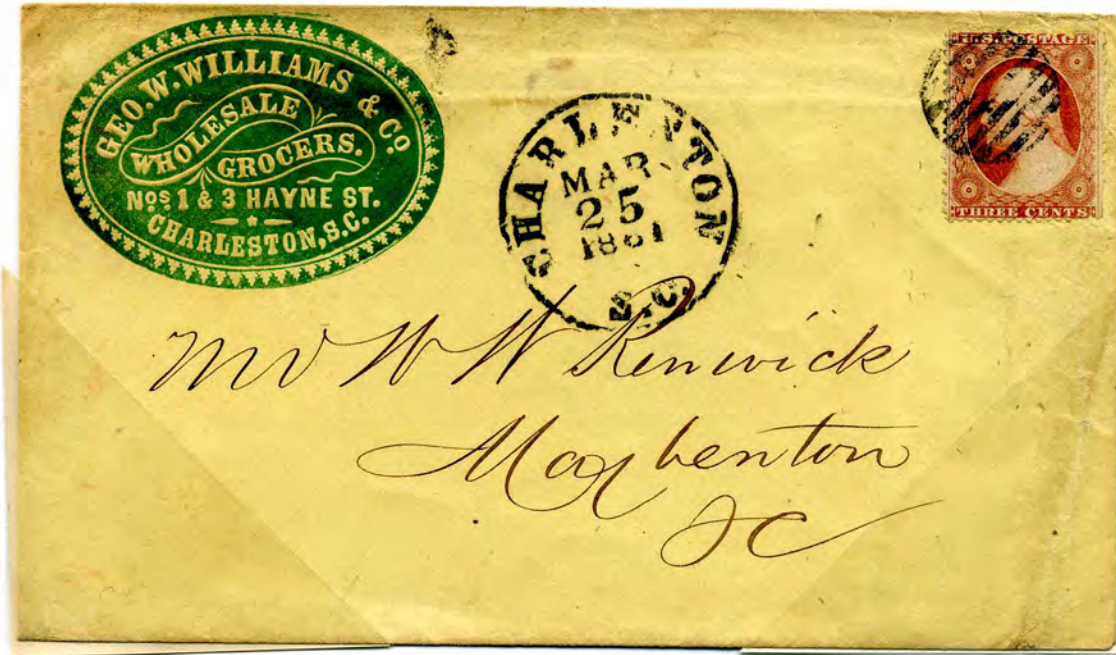 GEO. W. WILLIAMS & Co.
WHOLESALE
GROCERS.
Nos 1 & 3 HAYNE ST.
CHARLESTON, S.C.
CHARLESTON
MAR
25
1861
S.C.
U.S. POSTAGE
THREE CENTS
Mr W W Renwick
Maybenton
SC